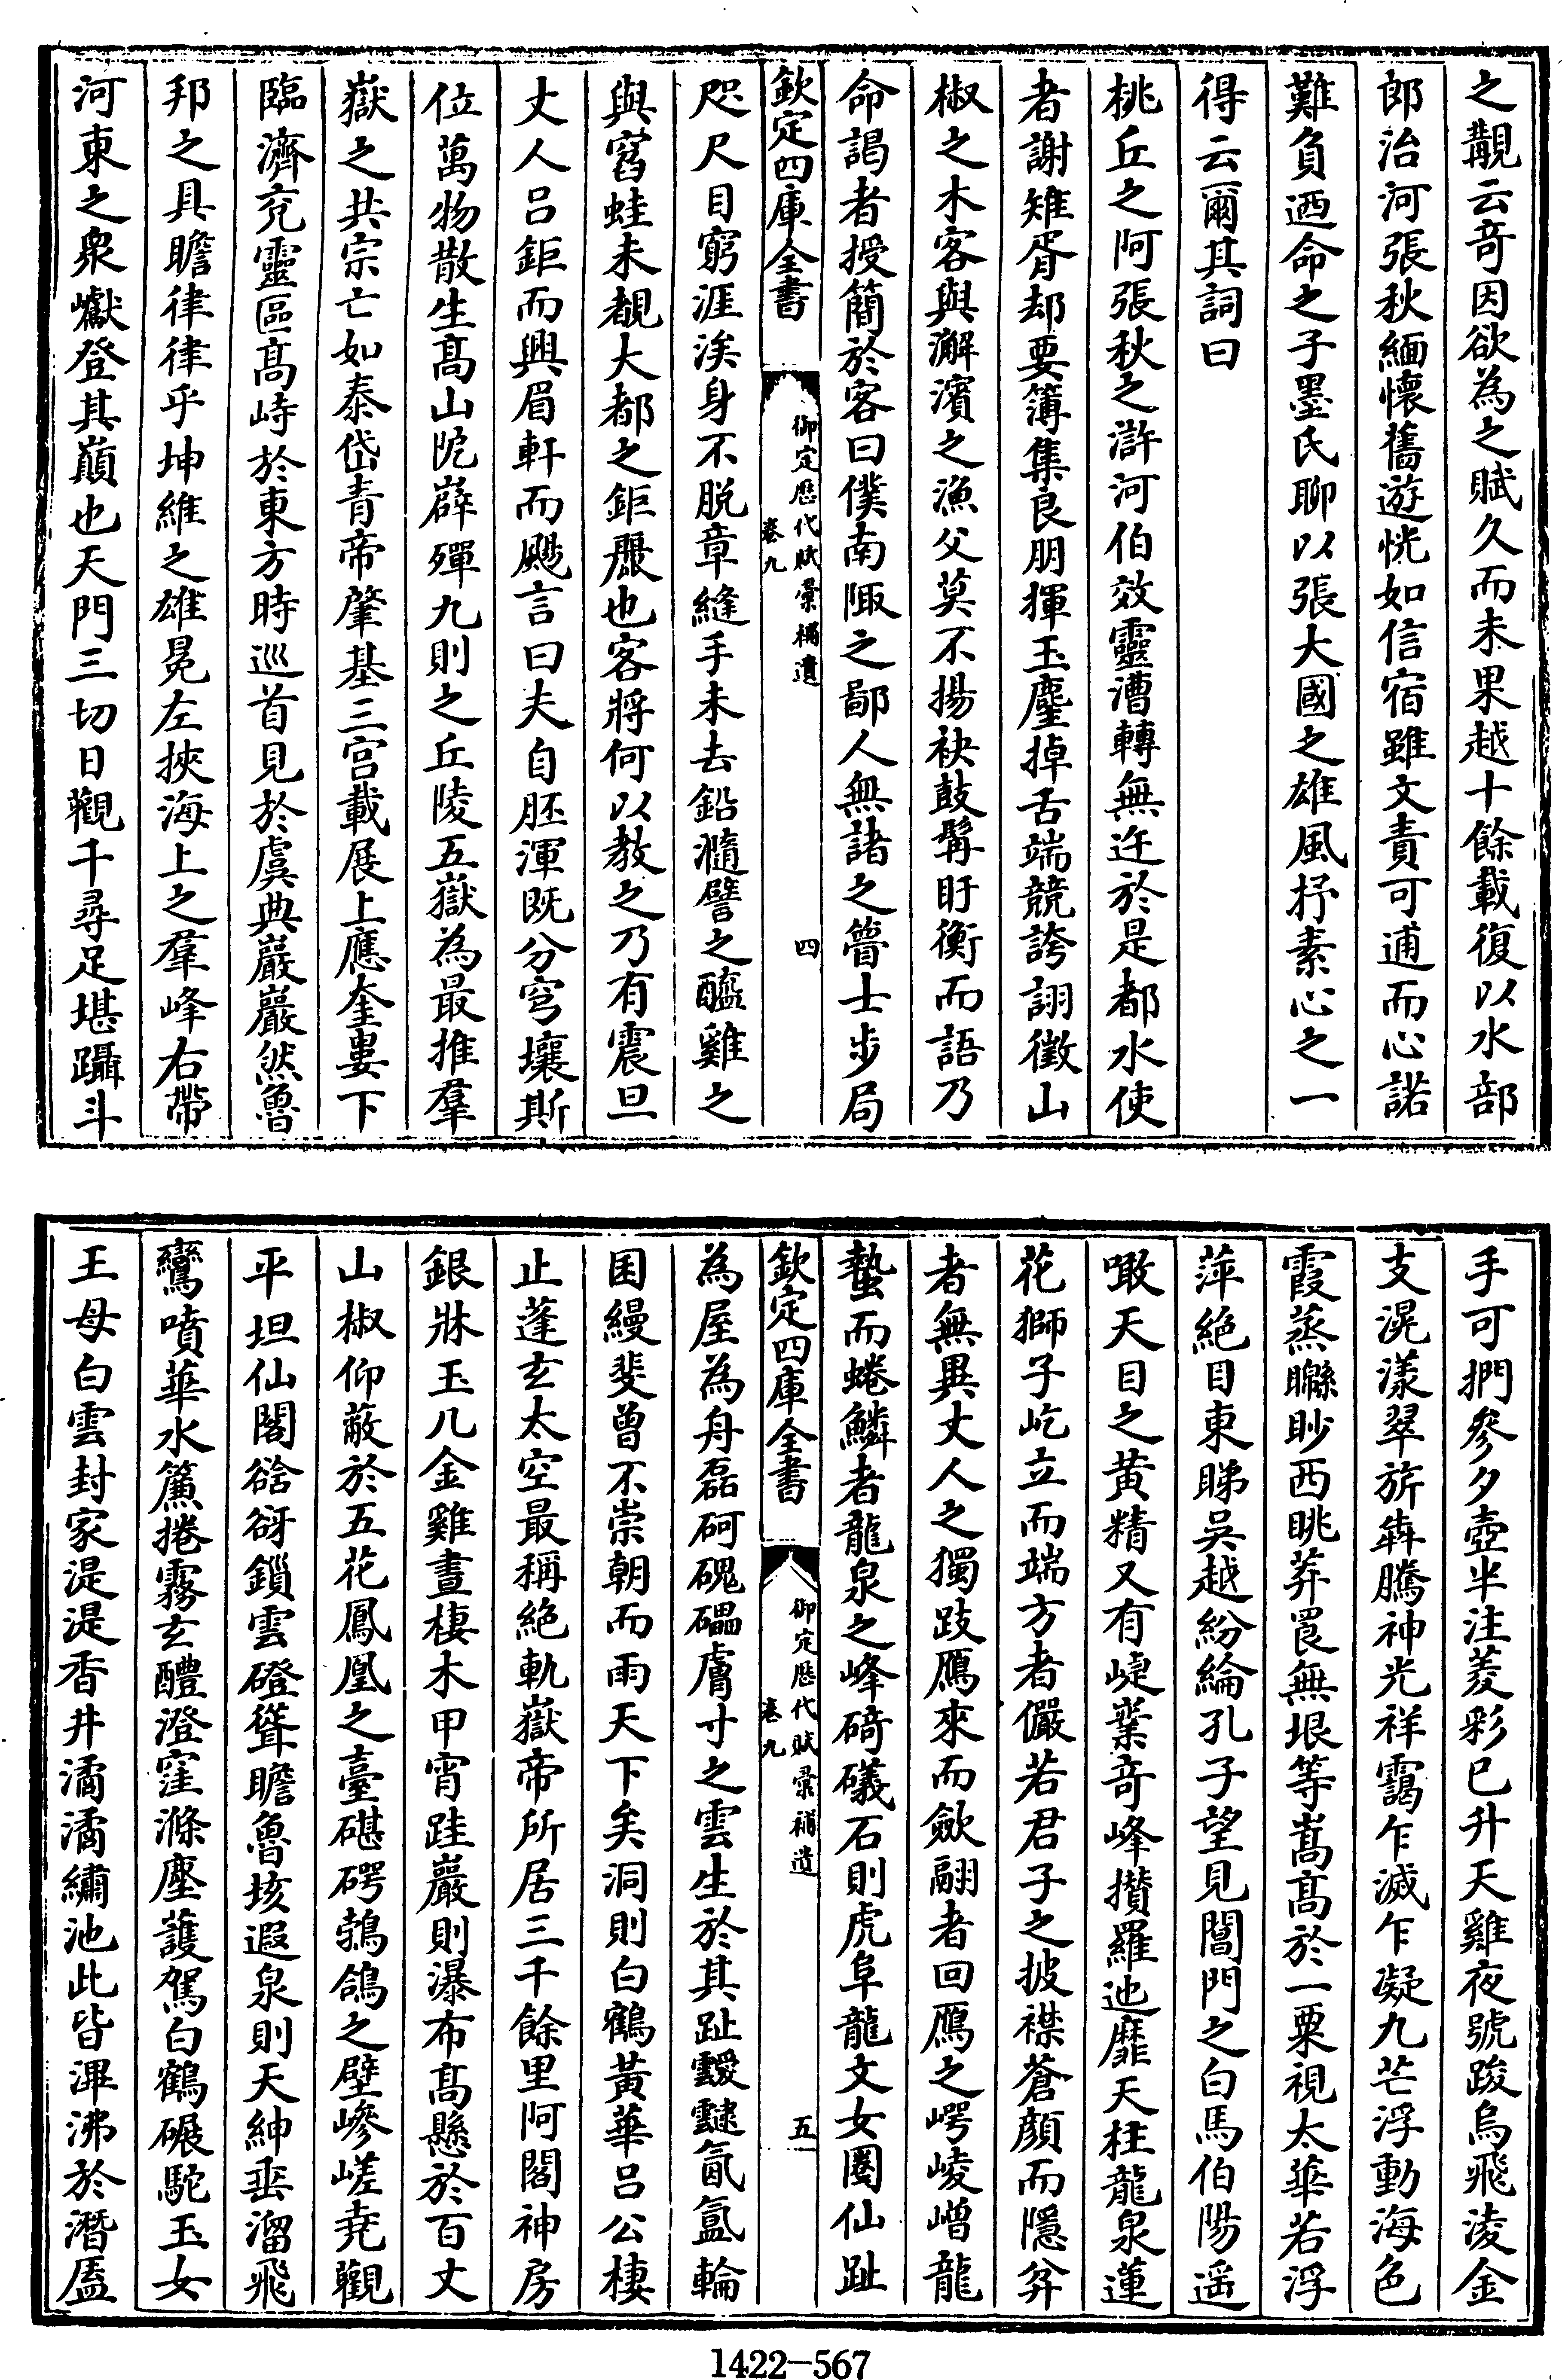 之覩云奇因欲為之賦久而未果越十餘載復以水部
郎治河張秋緬懷舊遊恍如信宿雖文責可逋而心諾
難負迺命之子墨氏聊以張大國之雄風抒素心之一
得云爾其詞曰
桃丘之阿張秋之滸河伯效靈漕轉無迕於是都水使
者謝雉胥却要簿集良朋揮玉麈掉舌端競誇詡徵山
椒之木客與澥濱之漁父莫不揚袂鼓髯盱衡而語乃
命謁者授簡於客曰僕南陬之鄙人無諸之瞢士步局
欽定四庫全書
御定歷代賦彙補遺
卷九
四
咫尺目窮涯涘身不脱章縫手未去鉛㵢譬之醯雞之
與窞蛙未覩大都之鉅麗也客將何以教之乃有震旦
丈人吕鉅而興眉軒而颺言曰夫自胚渾既分穹壤斯
位萬物散生髙山阤嶭殫九則之丘陵五嶽為最推羣
嶽之共宗亡如泰岱青帝肇基三宫載展上應奎婁下
臨濟兗靈區髙峙於東方時巡首見於虞典巖巖然魯
邦之具瞻律律乎坤維之雄冕左挾海上之羣峰右帶
河東之衆巘登其巔也天門三切日觀千尋足堪躡斗
手可捫參夕壺半注菱彩已升天雞夜號踆烏飛淩金
支滉漾翠旂犇騰神光祥靄乍滅乍凝九芒浮動海色
霞蒸矊眇西眺莽罠無垠等嵩髙於一粟視太華若浮
萍絶目東睇吳越紛綸孔子望見閶門之白馬伯陽遥
噉天目之黄精又有崼嶪奇峰攢羅迆靡天柱龍泉蓮
花獅子屹立而端方者儼若君子之披襟蒼顔而隱弅
者無異丈人之獨跂鴈來而斂翮者回鴈之崿崚嶒龍
蟄而蜷鱗者龍泉之峰碕礒石則虎阜龍文女圏仙趾
欽定四庫全書
御定歷代賦彙補遺
卷九
五
為屋為舟磊砢磈礧膚寸之雲生於其趾靉靆氤氲輪
囷縵斐曾不崇朝而雨天下矣洞則白鶴黃華吕公棲
止蓬玄太空最稱絶軌嶽帝所居三千餘里阿閣神房
銀牀玉几金雞晝棲木甲宵跬巖則瀑布髙懸於百丈
山椒仰蔽於五花鳳凰之臺碪碍鵓鴿之壁嵾嵯堯觀
平坦仙閣谽谺鎻雲磴聳瞻魯垓遐泉則天紳垂溜飛
鸞噴華水簾捲霧玄醴澄窪滌塵護駕白鶴碾駝玉女
王母白雲封家湜湜香井潏潏繡池此皆潷沸於潛廅
1422-567